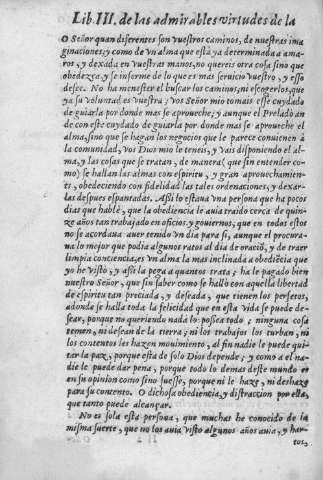 Lib. III. de las admirables virtudes de la
O Señor quan diferentes son vuestros caminos, de nuestras ima
ginaciones; y como de vn alma que està ya determinada a ama-
ros, y dexada en vuestras manos, no quereis otra cosa sino que
obedezca, y se informe de lo que es mas seruicio vuestro, y esso
desee. No ha menester el buscar los caminos, ni escogerlos, que
ya su voluntad es vuestra; vos Señor mio tomais esse cuydado
de guiarla por donde mas se aproueche; y aunque el Prelado an
de con este cuydado de guiarla por donde mas se aproueche el
alma, sino que se hagan los negocios que le parece conuienen à
la comunidad, vos Dios mio le teneis, y vais disponiendo el al-
ma, y las cosas que se tratan, de manera (que sin entender co-
mo) se hallan las almas con espiritu, y gran aprouechamien-
to, obedeciendo con fidelidad las tales ordenaciones, y dexar-
las despues espantadas. Assi lo estaua vna persona que ha pocos
dias que hablè, que la obediencia le auia traido cerca de quin-
ze años tan trabajado en oficios, y gouiernos, que en todos estos
no se acordaua auer tenido vn dia para si, aunque el procura-
ua lo mejor que podia algunos ratos al dia de oraciõ, y de traer
limpia conciencia, es vn alma la mas inclinada a obediẽcia que
yo he visto, y assi la pega a quantos trata; ha le pagado bien
nuestro Señor, que sin saber como se hallò con aquella libertad
de espiritu tan preciada, y deseada, que tienen los perfetos,
adonde se halla toda la felicidad que en esta vida se puede de-
sear, porque no queriendo nada lo possea todo; ninguna cosa
temen, ni desean de la tierra; ni los trabajos los turban, ni
los contentos les hazen mouimiento, al fin nadie le puede qui-
tar la paz, porque esta de solo Dios depende; y como a el na-
die le puede dar pena, porque todo lo demas deste mundo es
en su opinion como sino fuesse, porque ni le haze, ni deshaze
para su contento. O dichosa obediencia, y distraccion por ella,
que tanto puede alcançar.
No es sola esta persona, que muchas he conocido de la
misma suerte, que no los auia visto algunos años auia, y har-
tos,